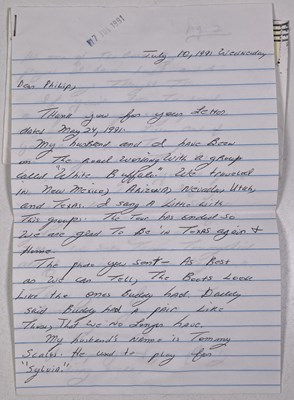 July 10, 1991 Wednesday
Dear Philip,
Thank you for your letter
dated May 24, 1991.
My husband and I have been
on The Road working with a group
called "White Buffalo." We traveled
in New Mexico, Arizona, Nevada, Utah
and Texas. I sang a little with
this group. The Tour has ended so
we are glad To Be in Texas again &
Home.
The photo you sent - As Best
as we can Tell, The Boots look
Like the ones Buddy had. Daddy
said Buddy had a pair Like
Them, That we no longer have.
My husband's name is Tommy
Scales. He used to play for
"Sylvia".